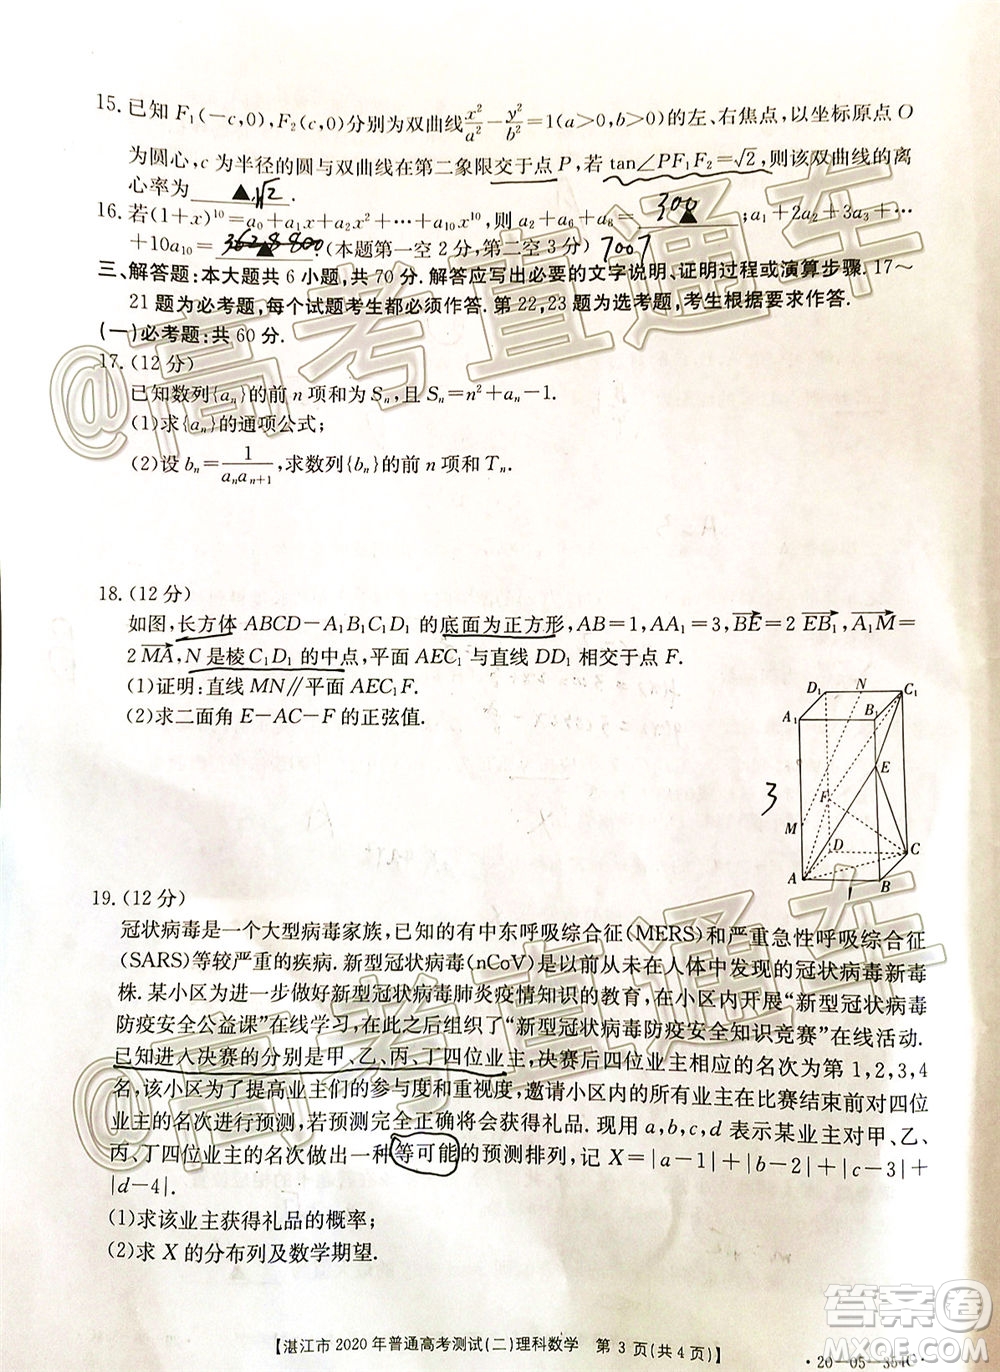 15. 已知 F₁(-c,0),F₂(c,0)分别为双曲线x²/a² - y²/b² = 1(a>0,b>0)的左、右焦点,以坐标原点 O
为圆心,c 为半径的圆与双曲线在第二象限交于点 P,若 tan∠PF₁F₂=√2,则该双曲线的离
心率为 ▲ √2.
16. 若(1+x)¹⁰=a₀+a₁x+a₂x²+⋯+a₁₀x¹⁰,则 a₂+a₆+a₈= 300 ▲ ;a₁+2a₂+3a₃+⋯
+10a₁₀= 3628800 ▲ .(本题第一空 2 分,第二空 3 分) 7007
三、解答题:本大题共 6 小题,共 70 分.解答应写出必要的文字说明、证明过程或演算步骤.17~
21 题为必考题,每个试题考生都必须作答.第 22,23 题为选考题,考生根据要求作答.
(一)必考题:共 60 分.
17. (12 分)
已知数列{aₙ}的前 n 项和为 Sₙ,且 Sₙ=n²+aₙ-1.
(1)求{aₙ}的通项公式;
(2)设 bₙ=1/(aₙaₙ₊₁),求数列{bₙ}的前 n 项和 Tₙ.
18. (12 分)
如图,长方体 ABCD-A₁B₁C₁D₁ 的底面为正方形,AB=1,AA₁=3,BE→=2 EB₁→,A₁M→=
2 MA→,N 是棱 C₁D₁ 的中点,平面 AEC₁ 与直线 DD₁ 相交于点 F.
(1)证明:直线 MN∥平面 AEC₁F.
(2)求二面角 E-AC-F 的正弦值.
D₁ N C₁
A₁ B₁
E
3 F
M
D C
A B
1
19. (12 分)
冠状病毒是一个大型病毒家族,已知的有中东呼吸综合征(MERS)和严重急性呼吸综合征
(SARS)等较严重的疾病.新型冠状病毒(nCoV)是以前从未在人体中发现的冠状病毒新毒
株.某小区为进一步做好新型冠状病毒肺炎疫情知识的教育,在小区内开展“新型冠状病毒
防疫安全公益课”在线学习,在此之后组织了“新型冠状病毒防疫安全知识竞赛”在线活动.
已知进入决赛的分别是甲、乙、丙、丁四位业主,决赛后四位业主相应的名次为第 1,2,3,4
名,该小区为了提高业主们的参与度和重视度,邀请小区内的所有业主在比赛结束前对四位
业主的名次进行预测,若预测完全正确将会获得礼品.现用 a,b,c,d 表示某业主对甲、乙、
丙、丁四位业主的名次做出一种等可能的预测排列,记 X=|a-1|+|b-2|+|c-3|+
|d-4|.
(1)求该业主获得礼品的概率;
(2)求 X 的分布列及数学期望.
【湛江市 2020 年普通高考测试(二)理科数学 第 3 页(共 4 页)】
@高考直通车
@高考直通车
答案圈
MXQE.COM